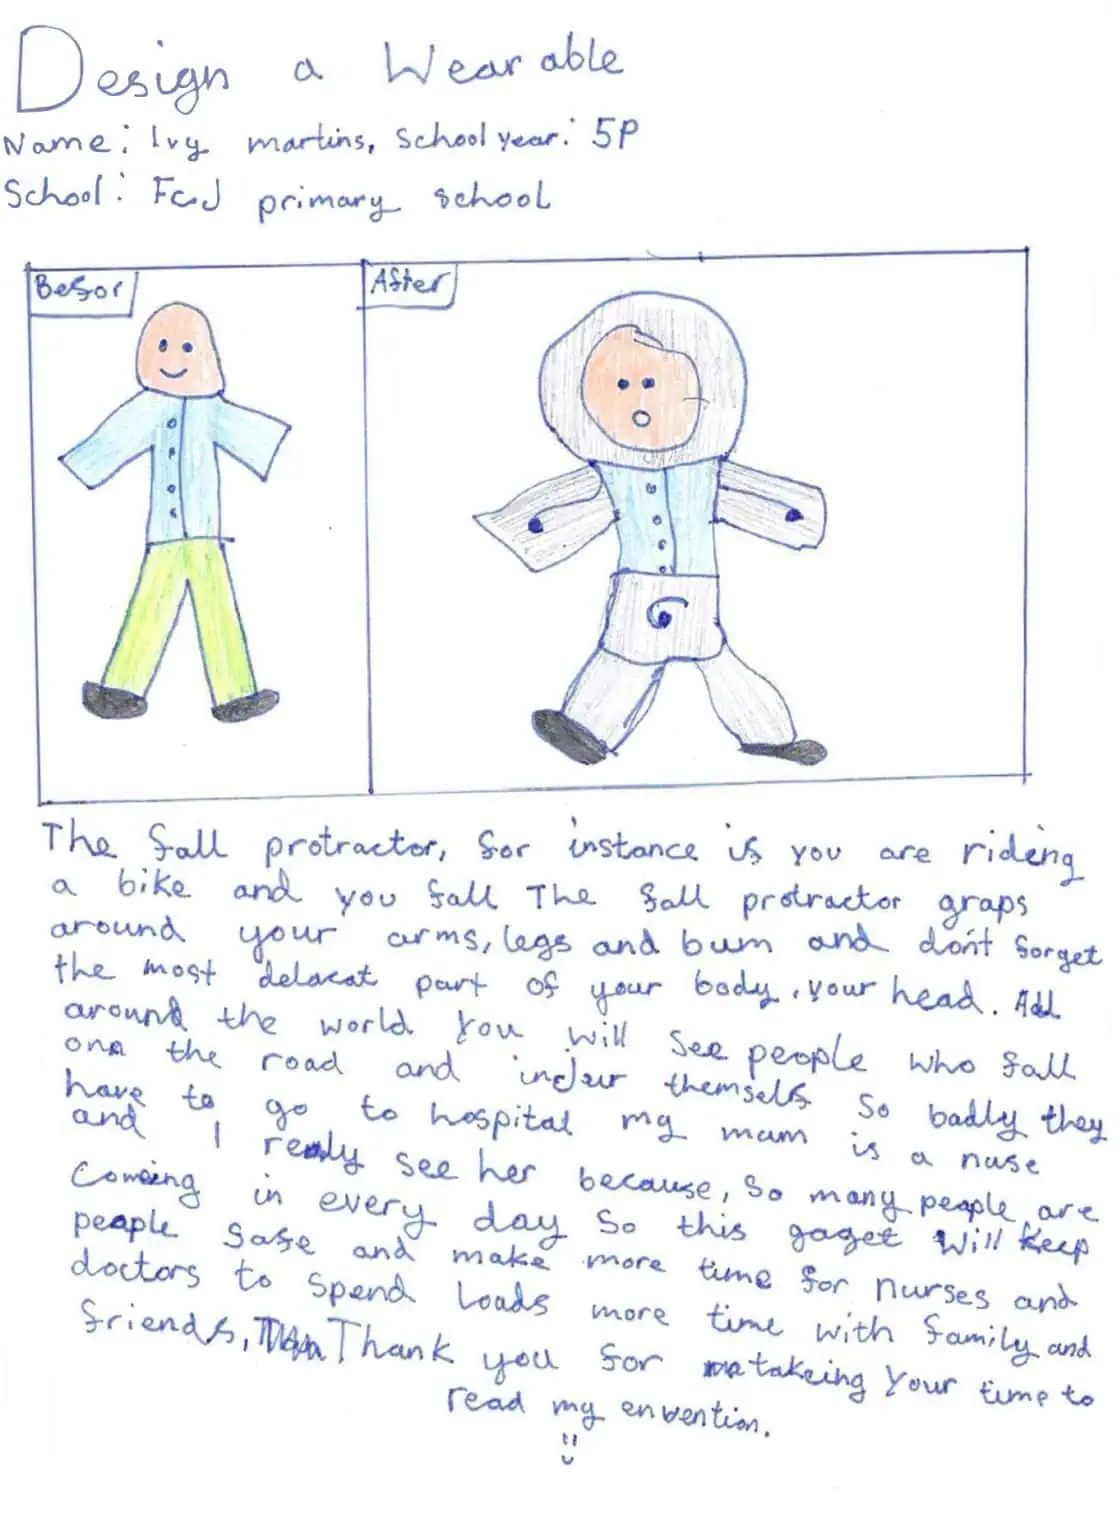 Design a Wearable
Name: Ivy martins, School year: 5P
School: FCJ primary school
Befor
After
The fall protractor, for instance if you are rideing
a bike and you fall The fall protractor graps
around your arms, legs and bum and don't forget
the most delacat part of your body, your head. All
around the world you will see people who fall
on the road and injeur themselfs so badly they
have to go to hospital my mum is a nuse
and I rearly see her because, so many people are
Comeing in every day So this gaget will keep
people safe and make more time for nurses and
doctors to spend loads more time with family and
friends, Thank you for takeing your time to
read my envention.